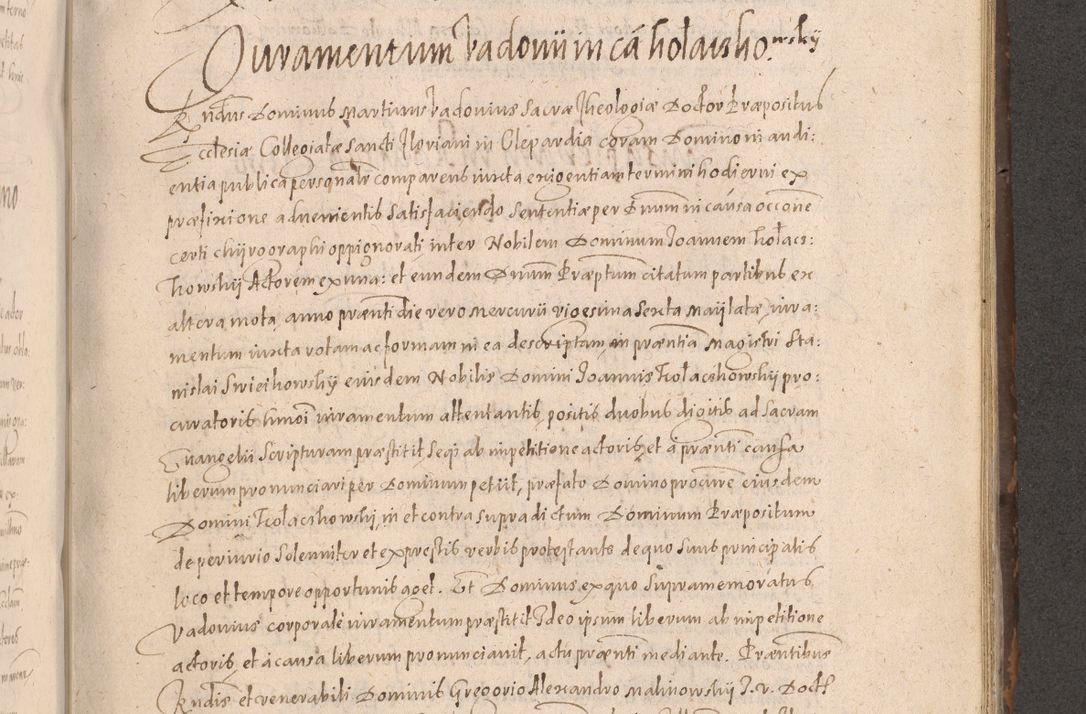 Juramentum Vadovii in cã Tholaisho.wskÿ
Rndus Dominus Martinus Vadovius Sacræ Theologiæ Doctor Præpositus
Ecclesiæ Collegiatæ Sancti Floriani in Clepardia coram Domino in audi:
entia publica personalr comparens iuxta exigentiam termini hodierni ex
præfixione advenientis Satisfaciendo Sententiæ per Dnum in causa occone
certi chijrographi oppignorati inter Nobilem Dominum Joannem Tholacs:
howskij Actorem ex una: et eundem Dnum Præptum citatum partibus ex
altera mota, anno prænti die vero Mercurii vigesima Sexta Maij lata, iura:
mentum iuxta rotam ac formam in ea descriptam, in præntia Magistri Sta:
nislai Swieihowskij eiusdem Nobilis Domini Joannis Tholacshowskij pro:
curatoris hmoi iuramentum attentantis, positis duobus digitis ad Sacram
Euangelii Scripturam præstitit Seqs ab impetitione actoris, et a prænti causa
liberum pronunciari per Dominum petiit, præfato Domino procure eiusdem
Domini Tholacshowskij, in et contra supradictum Dominum Præpositum
de periurio Solenniter et expressis verbis protestante de quo Suus principalis
loco et tempore opportunis aget. Et Dominus, ex quo Supramemoratus
Vadovius corporale iuramentum præstitit Ideo ipsum liberum ab impetitione
actoris, et a causa liberum pronunciavit, actu prænti mediante. Præntibus
Rndis et venerabili Dominis Gregorio Alexandro Malinowskij J. v. Doct